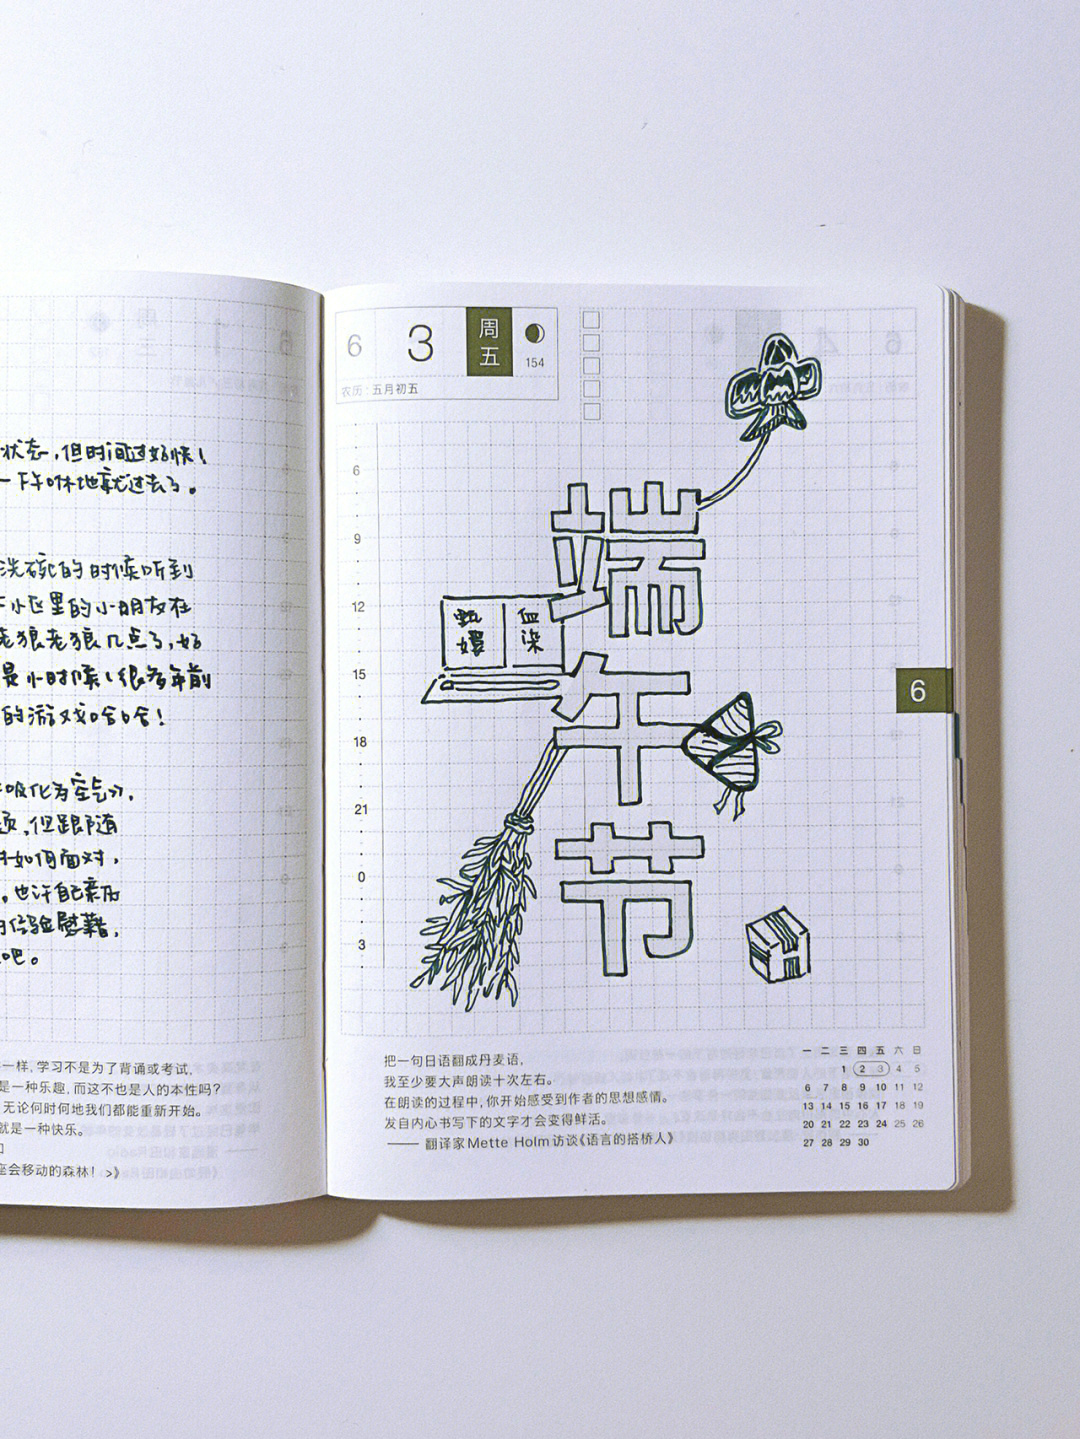 状态，但时间过好快！
一下午咻地就过去了。
洗碗的时候听到
小区里的小朋友在
老狼老狼几点了，好
是小时候（很多年前
的游戏哈哈！
吸化为空气），
但跟随
如何面对，
。也许自己亲历
经验慰藉，
吧。
一样，学习不是为了背诵或考试，
是一种乐趣，而这不也是人的本性吗？
无论何时何地我们都能重新开始。
就是一种快乐。
座会移动的森林！>》
6 3 周五 154
农历：五月初五
端午节
甄嬛 血染
6
9
12
15
18
21
0
3
6
把一句日语翻成丹麦语，
我至少要大声朗读十次左右。
在朗读的过程中，你开始感受到作者的思想感情。
发自内心书写下的文字才会变得鲜活。
—— 翻译家Mette Holm访谈《语言的搭桥人》
一 二 三 四 五 六 日
1 2 3 4 5
6 7 8 9 10 11 12
13 14 15 16 17 18 19
20 21 22 23 24 25 26
27 28 29 30